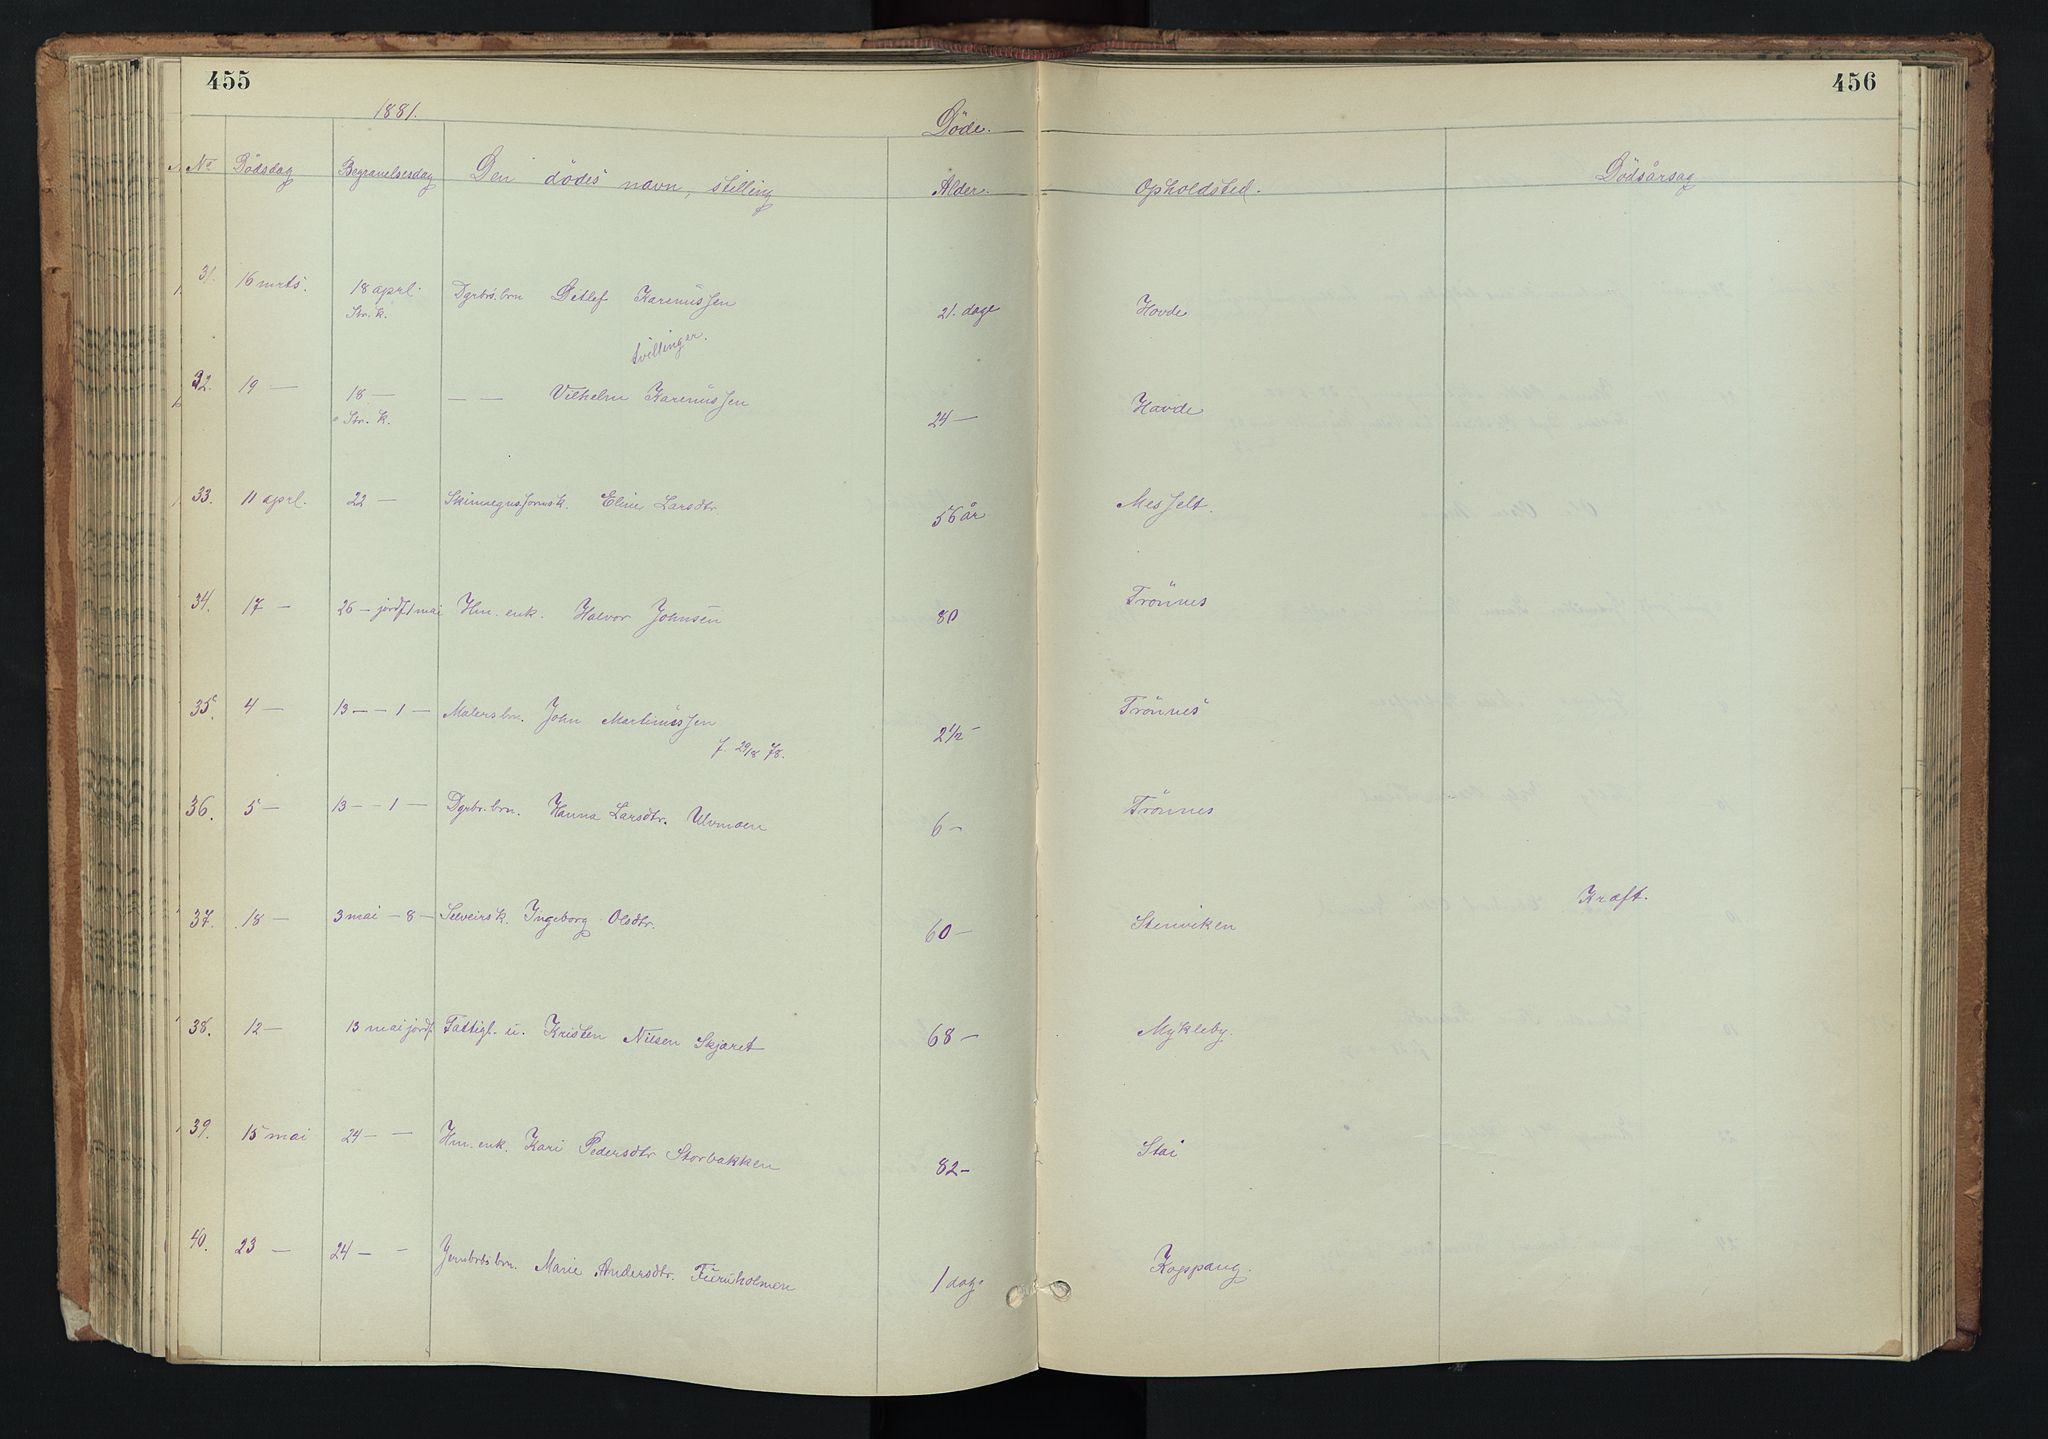 455
456
1881.
Døde.
No Dødsdag Begravelsesdag Den dødes navn, stilling Alder. Opholdsted. Dødsårsag
31. 16 mrts. 18 aprl. Dgrbrs.brn Detlef Karenussen 21. dage Hovde
Str. k.
tvillinger.
32. 19 — 18 — — — Vilhelm Karenussen 24 — Hovde
Str. k.
33. 11 aprl. 22 — Eline Larsdtr. 56 år Messelt.
34. 17 — 26 — jordf. 1 mai Hm. enk. Halvor Johnsen 80 Trønnes
35. 4 — 13 — — 1 — Malersbn. John Martinussen 2 1/2 — Trønnes
f. 29/8 78.
36. 5 — 13 — — 1 — Dgrbr. brn. Hanna Larsdtr. Ulvmoen 6 — Trønnes
37. 18 — 3 mai — 8 — Selveirsk. Ingeborg Olsdtr. 60 — Stenviken Kræft.
38. 12 — 13 mai jordf. Fattigl. u. Kristen Nilsen Skjæret 68 — Mykleby.
39. 15 mai 24 — — Hm. enk. Kari Pedersdtr Storbakken 82 — Stai
40. 23 — 24 — — Jernbrbs brn. Marie Andersdtr. Furuholmen 1 dag Kopspang.